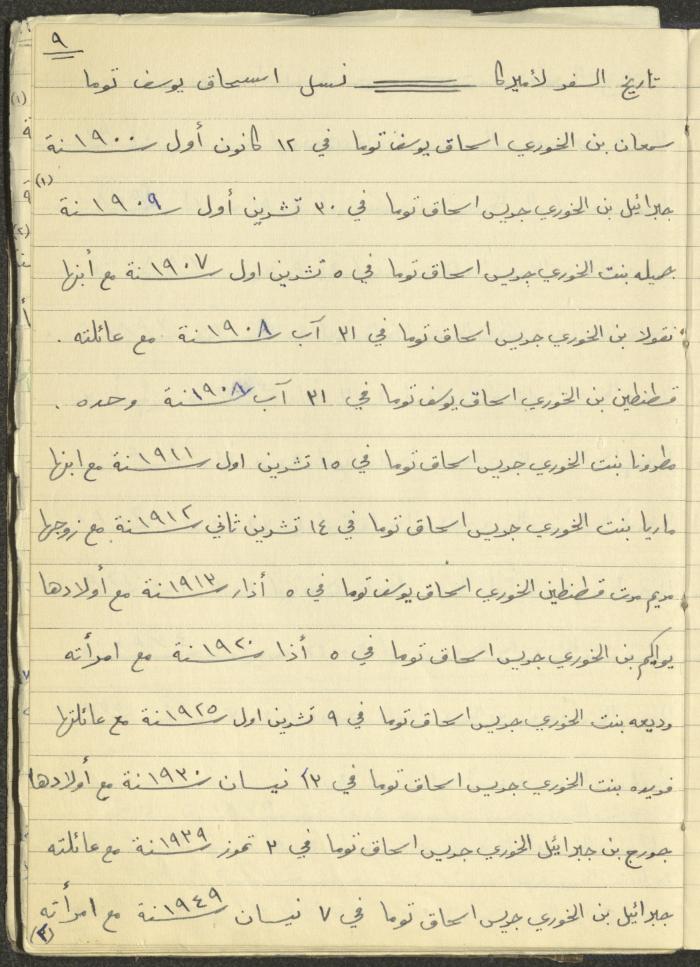 ٩
تاريخ السفر لأميركا ــــــــ نسل اسحاق يوسف توما
سمعان بن الخوري اسحاق يوسف توما في ١٢ كانون أول سنة ١٩٠٠
(١) جبرائيل بن الخوري جريس اسحاق توما في ٣٠ تشرين أول سنة ١٩٠٩
جميله بنت الخوري جريس اسحاق توما في ٥ تشرين اول سنة ١٩٠٧ مع أبنها
نقولا بن الخوري جريس اسحاق توما في ٣١ آب سنة ١٩٠٨ مع عائلته .
قسطنطين بن الخوري اسحاق يوسف توما في ٣١ آب سنة ١٩٠٨ وحده .
مطرونا بنت الخوري جريس اسحاق توما في ١٥ تشرين اول سنة ١٩١١ مع ابنها
ماريا بنت الخوري جريس اسحاق توما في ١٤ تشرين ثاني سنة ١٩١٢ مع زوجها
مريم مرت قسطنطين الخوري اسحاق يوسف توما في ٥ أذار سنة ١٩١٣ مع أولادها
يواكيم بن الخوري جريس اسحاق توما في ٥ أذا سنة ١٩٢٠ مع امرأته
وديعه بنت الخوري جريس اسحاق توما في ٩ تشرين اول سنة ١٩٢٥ مع عائلتها
فريده بنت الخوري جريس اسحاق توما في ١٣ نيسان سنة ١٩٣٠ مع أولادها
جورج بن جبرائيل الخوري جريس اسحاق توما في ٢ تموز سنة ١٩٣٩ مع عائلته
جبرائيل بن الخوري جريس اسحاق توما في ٧ نيسان سنة ١٩٤٩ مع امرأته
(٣)